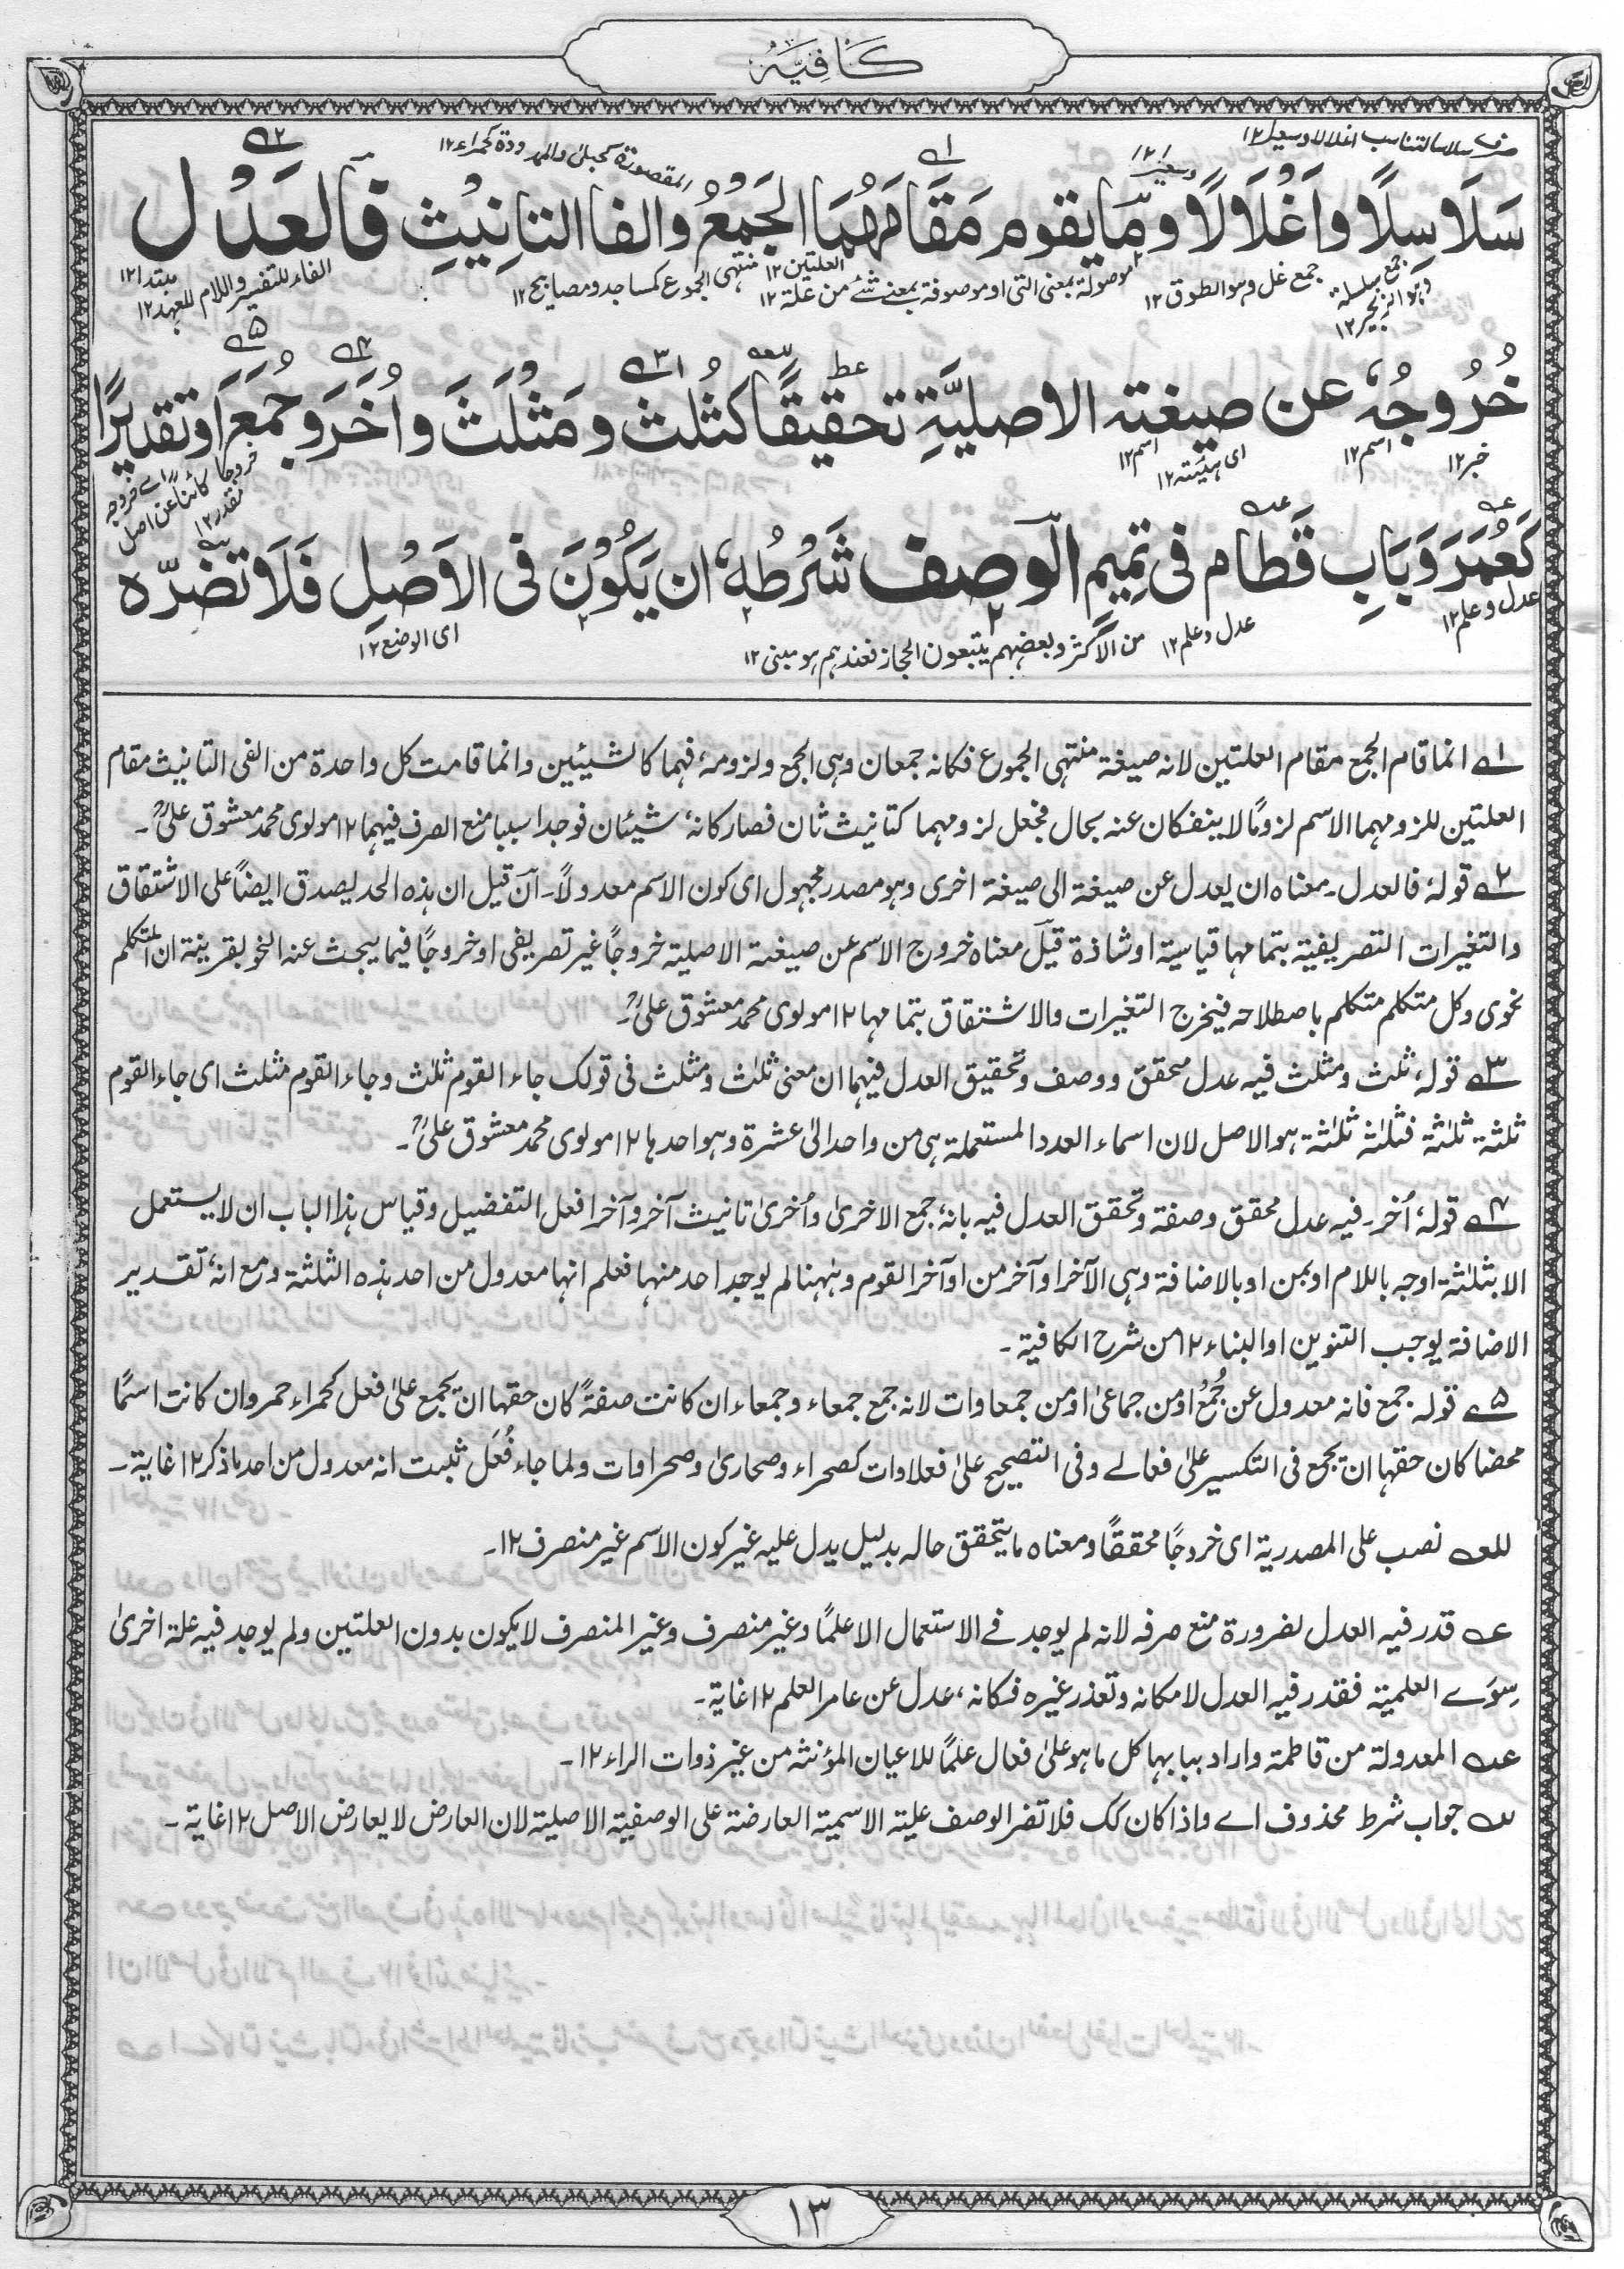 كَافِيَه
صرف سلاسلا لتناسب اغلالا وسعيرا ١٢
وسعيرا ١٢
المقصورة كحبلى والممدودة كحمراء ١٢
سَلَاسِلًا وَاَغْلَالًا وَمَا يقوم مَقَامَهُمَا الجَمْعُ والفا التانِيْثِ فَالعَدْلُ
جمع سلسلة وہو الزنجير ١٢
جمع غل وہو الطوق ١٢
موصولة بمعنى التى او موصوفة بمعنى شئ من علة ١٢
العلتين ١٢
منتهى الجموع كمساجد ومصابيح ١٢
الفاء للتفسير واللام للعهد ١٢
مبتدا ١٢
خُرُوجُهٗ عن صيغته الاصليَّةِ تحقيقًا كثُلٰث و مَثْلَثَ واُخَرَ وجُمَعَ اوتقديرًا
خبر ١٢
اسم ١٢
اسم ١٢
اى ہيئته ١٢
كَعُمَرَ وَبَابِ قَطَام فى تمِيمِ الوصف شَرْطُهٗ ان يَكُوْنَ فى الاَصْلِ فَلَا تضرّه
عدل وعلم ١٢
عدل وعلم ١٢
من الاكثر وبعضہم يتبعون الحجاز فعندہم ہو مبنى ١٢
اى الوضع ١٢
١ے انما قام الجمع مقام العلتين لانه صيغة منتهى الجموع فكانه جمعان وہى الجمع ولزومهٗ فهما كالشيئين وانما قامت كل واحدة من الفى التانيث مقام
العلتين للزومهما الاسم لزومًا لا ينفكان عنه بحال فجعل لزومهما كتانيث ثان فصار كانهٗ شيئان فوجدا سببا منع الصرف فيهما ١٢ مولوى محمد معشوق علىؒ۔
٢ے قولهٗ فالعدل۔ معناه ان يعدل عن صيغة الى صيغة اخرى وہو مصدر مجہول اى كون الاسم معدولًا۔ ان قيل ان ہذه الحد يصدق ايضًا على الاشتقاق
والتغيرات التصريفية بتمامها قياسية او شاذة قيل معناه خروج الاسم عن صيغته الاصلية خروجًا غير تصريفى او خروجًا فيما يبحث عنه النحو بقرينة ان المتكلم
نحوى وكل متكلم متكلم باصطلاحه فيخرج التغيرات والاشتقاق بتمامها ١٢ مولوى محمد معشوق علىؒ۔
٣ے قولهٗ ثلٰث ومثلث فيه عدل محقق ووصف وتحقيق العدل فيهما ان معنى ثلٰث ومثلث فى قولك جاء القوم ثلٰث وجاء القوم مثلث اى جاء القوم
ثلٰثة ثلٰثة فثلٰثة ثلٰثة ہو الاصل لان اسماء العدد المستعملة ہى من واحد الىٰ عشرة وہو احدہا ١٢ مولوى محمد معشوق علىؒ۔
٤ے قولهٗ اُخر۔ فيه عدل محقق وصفة وتحقق العدل فيه بانهٗ جمع الاخرىٰ واُخرىٰ تانيث آخر وآخر افعل التفضيل وقياس ہذا الباب ان لا يستعمل
الا بثلٰثة اوجه باللام او بمن او بالاضافة وہى الآخر او آخر من او آخر القوم وہٰہنا لم يوجد احد منها فعلم انها معدول من احد ہذه الثلثة ومع انهٗ تقدير
الاضافة يوجب التنوين او البناء ١٢ من شرح الكافية۔
٥ے قوله جمع فانه معدول عن جُمْعٌ او من جماعىٰ او من جمعاوات لانه جمع جمعاء وجمعاء ان كانت صفةً كان حقها ان تجمع علىٰ فعل كحمراء حمر وان كانت اسمًا
محضا كان حقها ان تجمع فى التكسير علىٰ فعالے وفى التصحيح علىٰ فعلاوات كصحراء وصحارىٰ وصحراوات ولما جاء فُعَل ثبت انه معدول من احد ما ذكر ١٢ غاية۔
للعه نصب على المصدرية اى خروجًا محققًا ومعناه ما يتحقق حاله بدليل يدل عليه غير كون الاسم غير منصرف ١٢۔
عه قدر فيه العدل لضرورة منع صرفه لانه لم يوجد فے الاستعمال الا علمًا وغير منصرف وغير المنصرف لا يكون بدون العلتين ولم يوجد فيه علة اخرىٰ
سِوَے العلمية فقدر فيه العدل لامكانه وتعذر غيره فكانهٗ عدل عن عامر العلم ١٢ غاية۔
عه المعدولة من قاطمة واراد ببابها كل ما ہو علىٰ فعال علمًا للاعيان المؤنثه من غير ذوات الراء ١٢۔
له جواب شرط محذوف اے واذا كان كك فلا تضر الوصف علية الاسمية العارضة على الوصفية الاصلية لان العارض لا يعارض الاصل ١٢ غاية۔
١٣